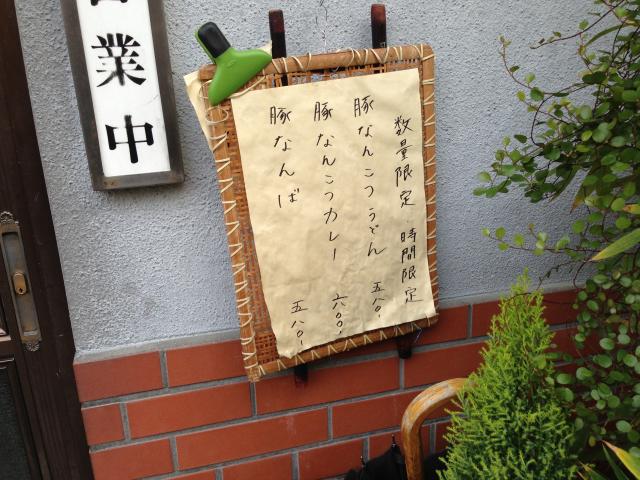 営業中
数量限定 時間限定
豚なんこつうどん 五八〇.
豚なんこつカレー 六〇〇.
豚なんば 五八〇.